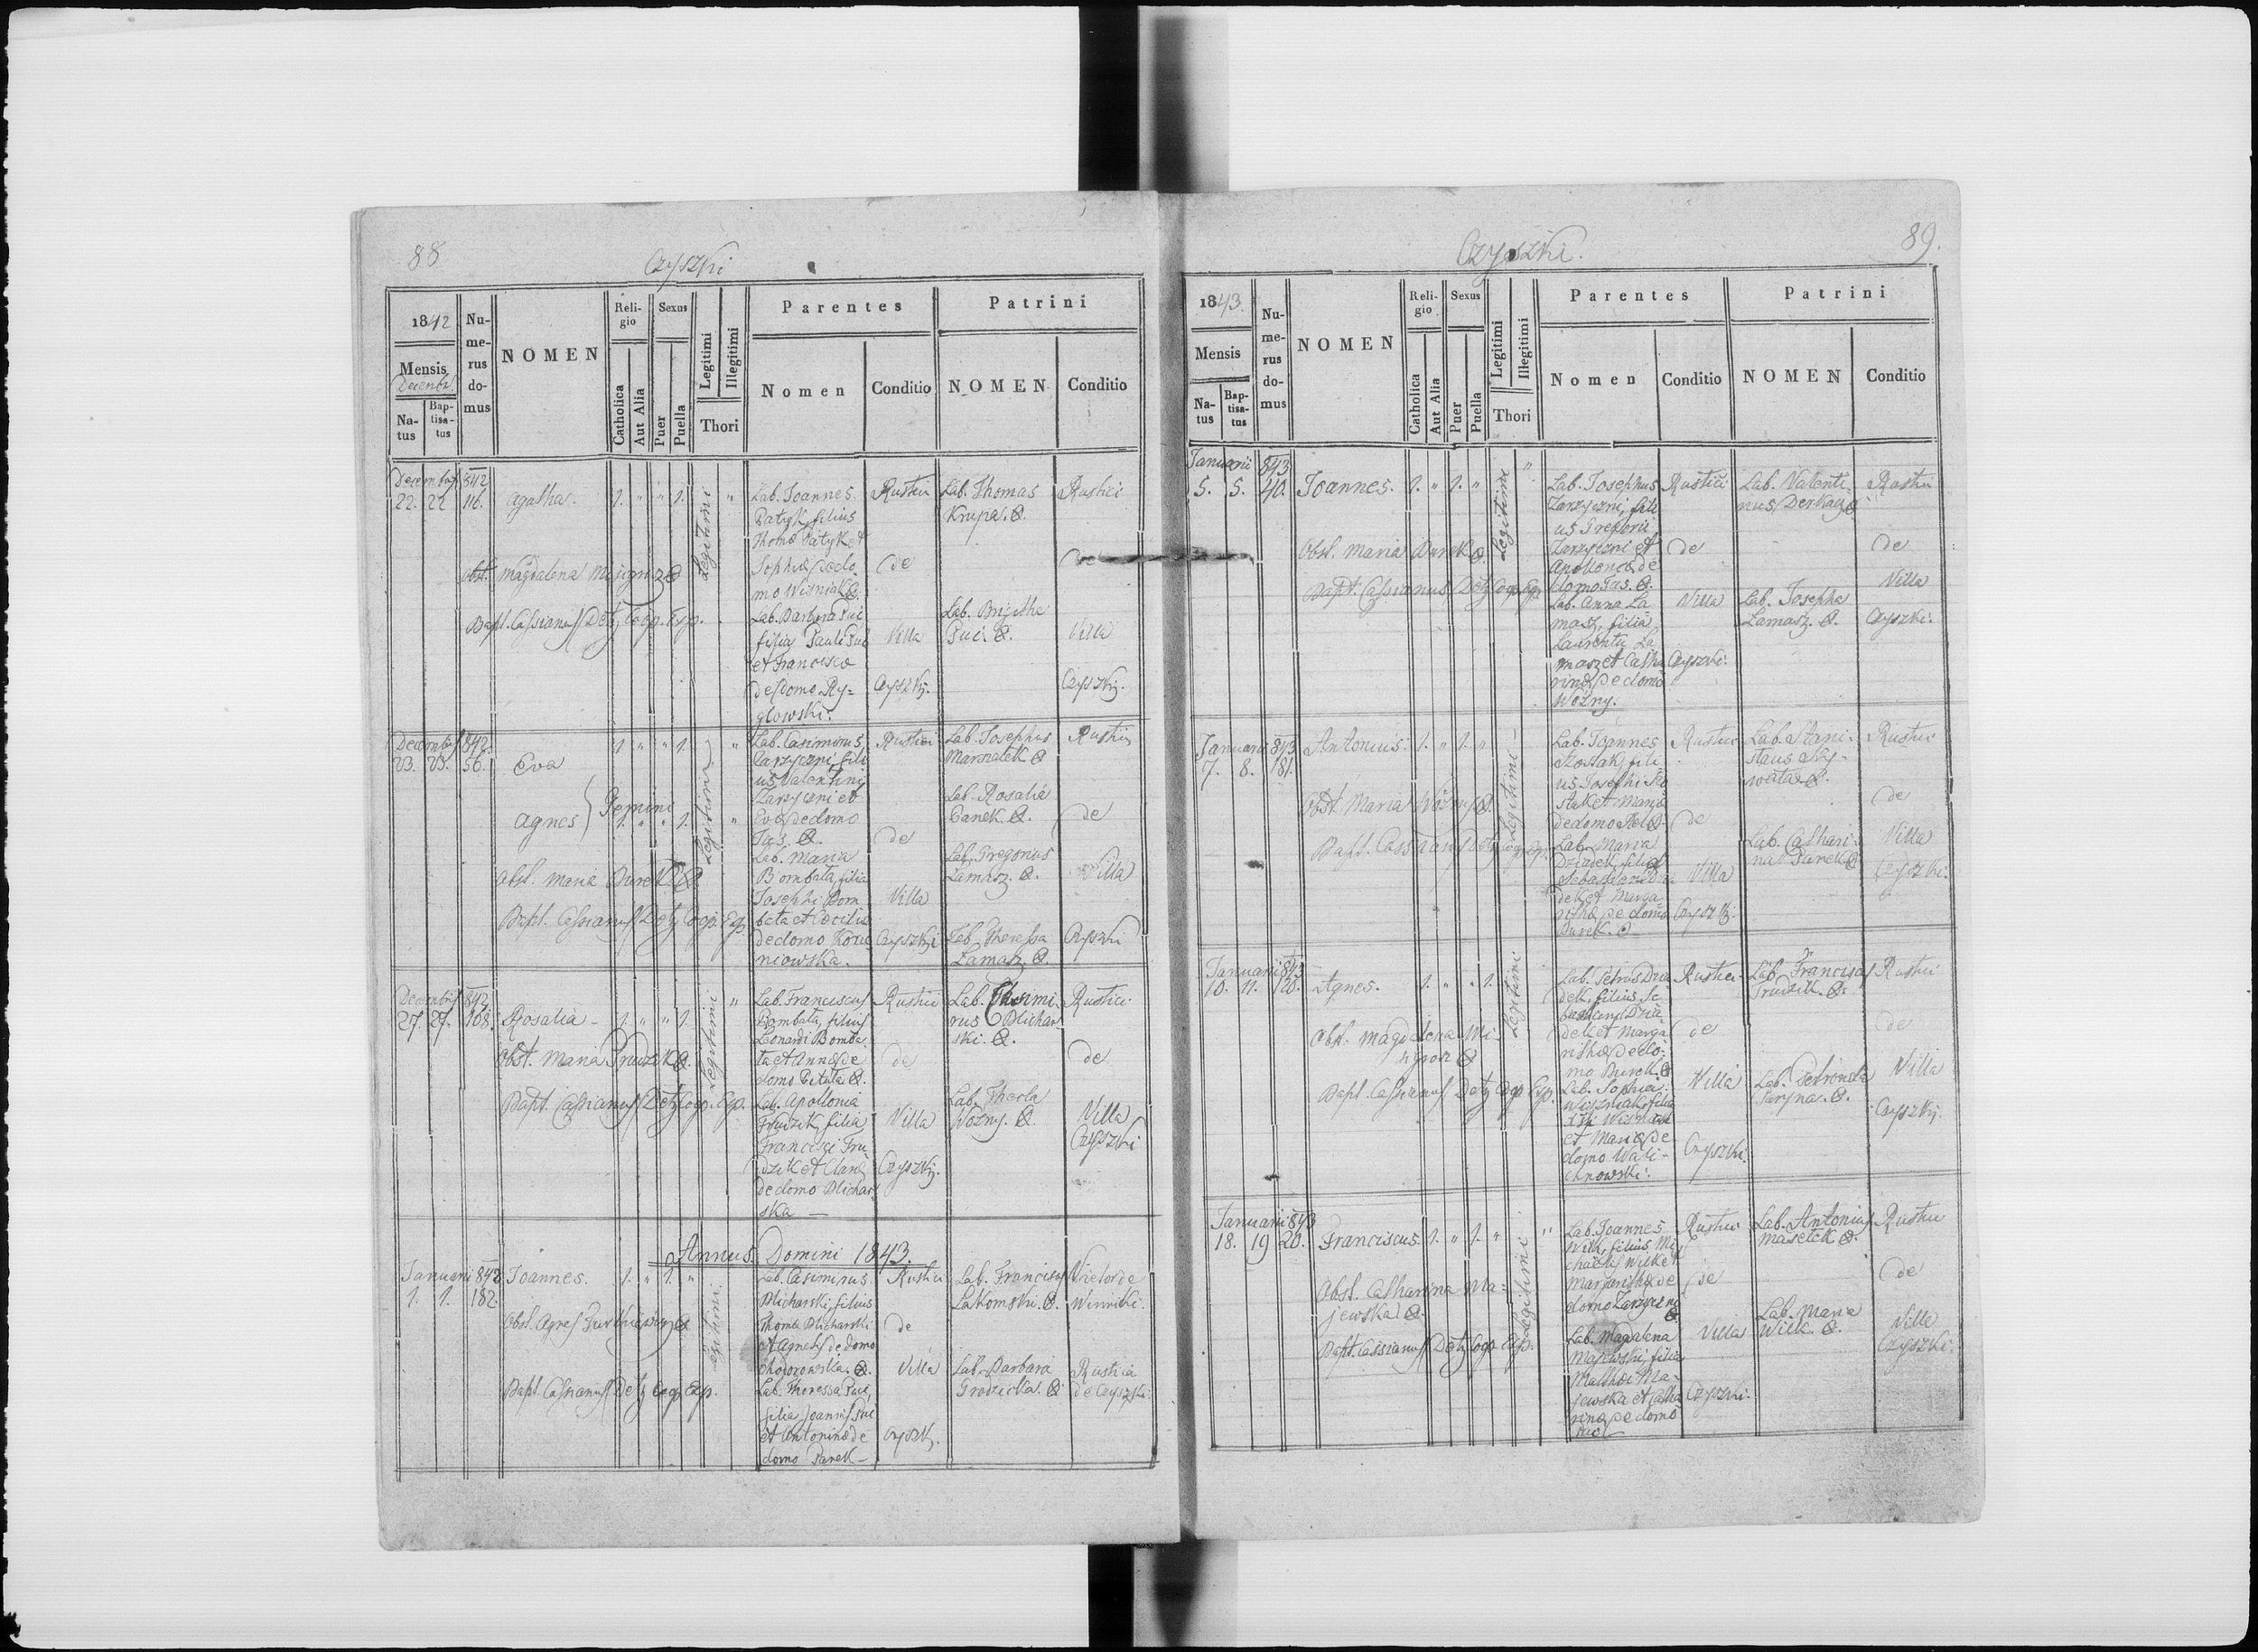 88
Czyszki
1842
Mensis
Decembr.
Na-
tus
Bap-
tisa-
tus
Nu-
me-
rus
do-
mus
NOMEN
Reli-
gio
Catholica
Aut Alia
Sexus
Puer
Puella
Legitimi
Illegitimi
Thori
Parentes
Nomen
Conditio
Patrini
NOMEN
Conditio
Decembris 842
22. 22 116. Agatha. 1. " " 1. "
Legitimi
Obst. Magdalena
Bapt. Cassianus Detz Coop. Exp.
Lab. Joannes
Patyk, filius
Thomæ Patyk et
Sophiæ de do-
mo Wisniak
Lab. Barbara Puc
filia Pauli Puc
et Franciscæ
de domo Ry-
glowski.
Rustici
de
Villa
Czyszki.
Lab. Thomas
Krupa.
Lab. Brigitha
Puc.
Rustici
de
Villa
Czyszki.
Decembris 842.
23. 23. 56. Eva 1. " " 1. "
Agnes } Gemini
1. " " 1. "
Legitimi
Obst. Maria Burek
Bapt. Cassianus Detz Coop. Exp.
Lab. Casimirus
Zarzyczni, fili-
us Valentini
Zarzyczni et
Evæ de domo
Lab. Maria
Bombała, filia
Josephi Bom
bała et Cæcilie
de domo Koza
niowska.
Rustici
de
Villa
Czyszki
Lab. Josephus
Marmalek
Lab. Rosalia
Panek.
Lab. Gregorius
Lamasz.
Lab. Theressa
Lamasz.
Rustici
de
Villa
Czyszki
Decembris 842
27. 27. 108. Rosalia - 1. " " 1. "
Legitimi
Obst. Maria Frudzik
Bapt. Cassianus Detz Coop. Exp.
Lab. Franciscus
Bombała, filius
Leonardi Bomba
ła et Annæ de
domo Pituła
Lab. Apollonia
Frudzik, filia
Francisci Fru
dzik et Claræ
de domo Plichar
ska —
Rustici
de
Villa
Czyszki.
Lab. Casimi
rus Plichar
ski.
Lab. Thecla
Wozny.
Rustici
de
Villa
Czyszki
Annus Domini 1843.
Januarii 843
1. 1. 182. Joannes. 1. " 1. "
Legitimi
Obst. Agnes
Bapt. Cassianus Detz Coop. Exp.
Lab. Casimirus
Plicharski, filius
Thomæ Plicharski
et Agnetis de domo
Chodorowska.
Lab. Theressa Puc,
filia Joannis Puc
et Antoninæ de
domo Panek —
Rustici
de
Villa
Czyszki.
Lab. Franciscus
Łakomski.
Lab. Barbara
Grodzicka.
Rustica
de Czyszki
89.
Czyszki.
1843.
Mensis
Na-
tus
Bap-
tisa-
tus
Nu-
me-
rus
do-
mus
NOMEN
Reli-
gio
Catholica
Aut Alia
Sexus
Puer
Puella
Legitimi
Illegitimi
Thori
Parentes
Nomen
Conditio
Patrini
NOMEN
Conditio
Januarii 843
5. 5. 40. Joannes. 1. " 1. " "
Legitimi
Obst. Maria Burek
Bapt. Cassianus Detz Coop. Exp.
Lab. Josephus
Zarzyczni, fili
us Gregorii
Zarzyczni et
Apolloniæ de
domo
Lab. Anna La
masz, filia
Laurentii La
masz et Catha
rinæ de domo
Wozny.
Rustici
de
Villa
Czyszki.
Lab. Valenti
nus Derkacz
Lab. Josepha
Lamasz.
Rustici
de
Villa
Czyszki.
Januarii 843
7. 8. 181. Antonius. 1. " 1. "
Legitimi
Obst. Maria Wozny
Bapt. Cassianus Detz Coop. Exp.
Lab. Joannes
Szostak, fili
us Josephi
de domo
Lab. Maria
Dziadek, filia
Sebastiani
dek et Marga
rithæ de domo
Burek.
Rustici
de
Villa
Czyszki.
Lab. Stani-
slaus
Lab. Cathari-
na Panek
Rustici
de
Villa
Czyszki.
Januarii 843
10. 11. 120. Agnes. 1. " " 1.
Legitimi
Obst. Magdalena
Bapt. Cassianus Detz Coop Exp.
Lab. Petrus Dzia
dek, filius Se
bastiani Dzia
dek et Marga
rithæ de do-
mo Burek
Lab. Sophia
Wiszniak, filia
et Mariæ de
domo Wali-
chnowski.
Rustici
de
Villa
Czyszki.
Lab. Franciscus
Frudzik.
Lab. Petronela
Rustici
de
Villa
Czyszki.
Januarii 843
18. 19 20. Franciscus. 1. " 1. " "
Legitimi
Obst. Catharina Ma-
jewska
Bapt. Cassianus Detz Coop. Exp.
Lab. Joannes
Wilk, filius Mi
chaelis Wilk et
Margarithæ de
domo Zarzyczny
Lab. Magdalena
Majewski, filia
Mathæi Ma-
jewska et Catha
rinæ de domo
Rustici
de
Villa
Czyszki.
Lab. Antonius
Masełek
Lab. Maria
Wilk.
Rustici
de
Villa
Czyszki.